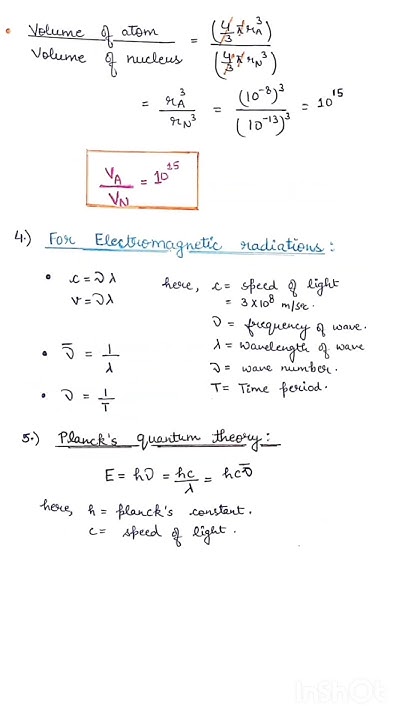 • Volume of atom / Volume of nucleus = (4/3 π r_A³) / (4/3 π r_N³)
= r_A³ / r_N³ = (10⁻⁸)³ / (10⁻¹³)³ = 10¹⁵
V_A / V_N = 10¹⁵
4.) For Electromagnetic radiations :
• c = νλ
v = νλ
here, c = speed of light
= 3 × 10⁸ m/sec.
ν = frequency of wave.
λ = wavelength of wave
ν = wave number.
T = Time period.
• ν̄ = 1/λ
• ν = 1/T
5.) Planck's quantum theory :
E = hν = hc/λ = hcν̄
here, h = planck's constant.
c = speed of light .
InShOt